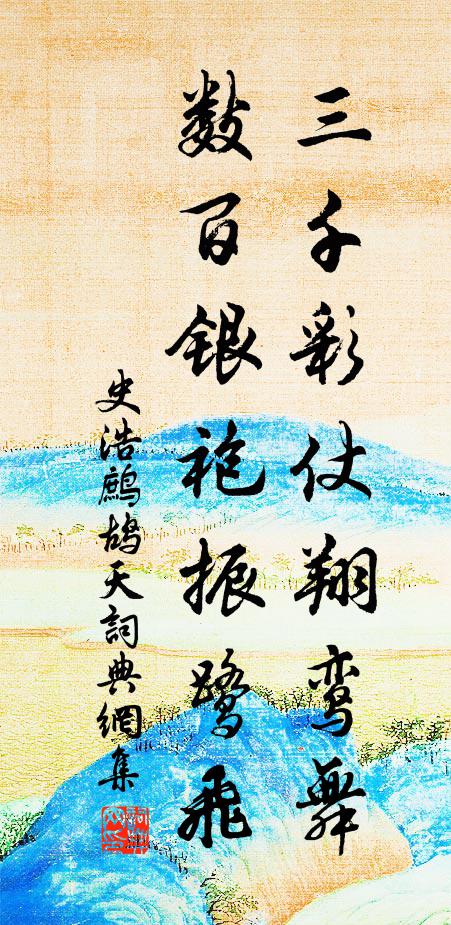 三千彩仗翔鸾舞
数百银袍振鹭飞
史浩鷓鴣天詞典網集